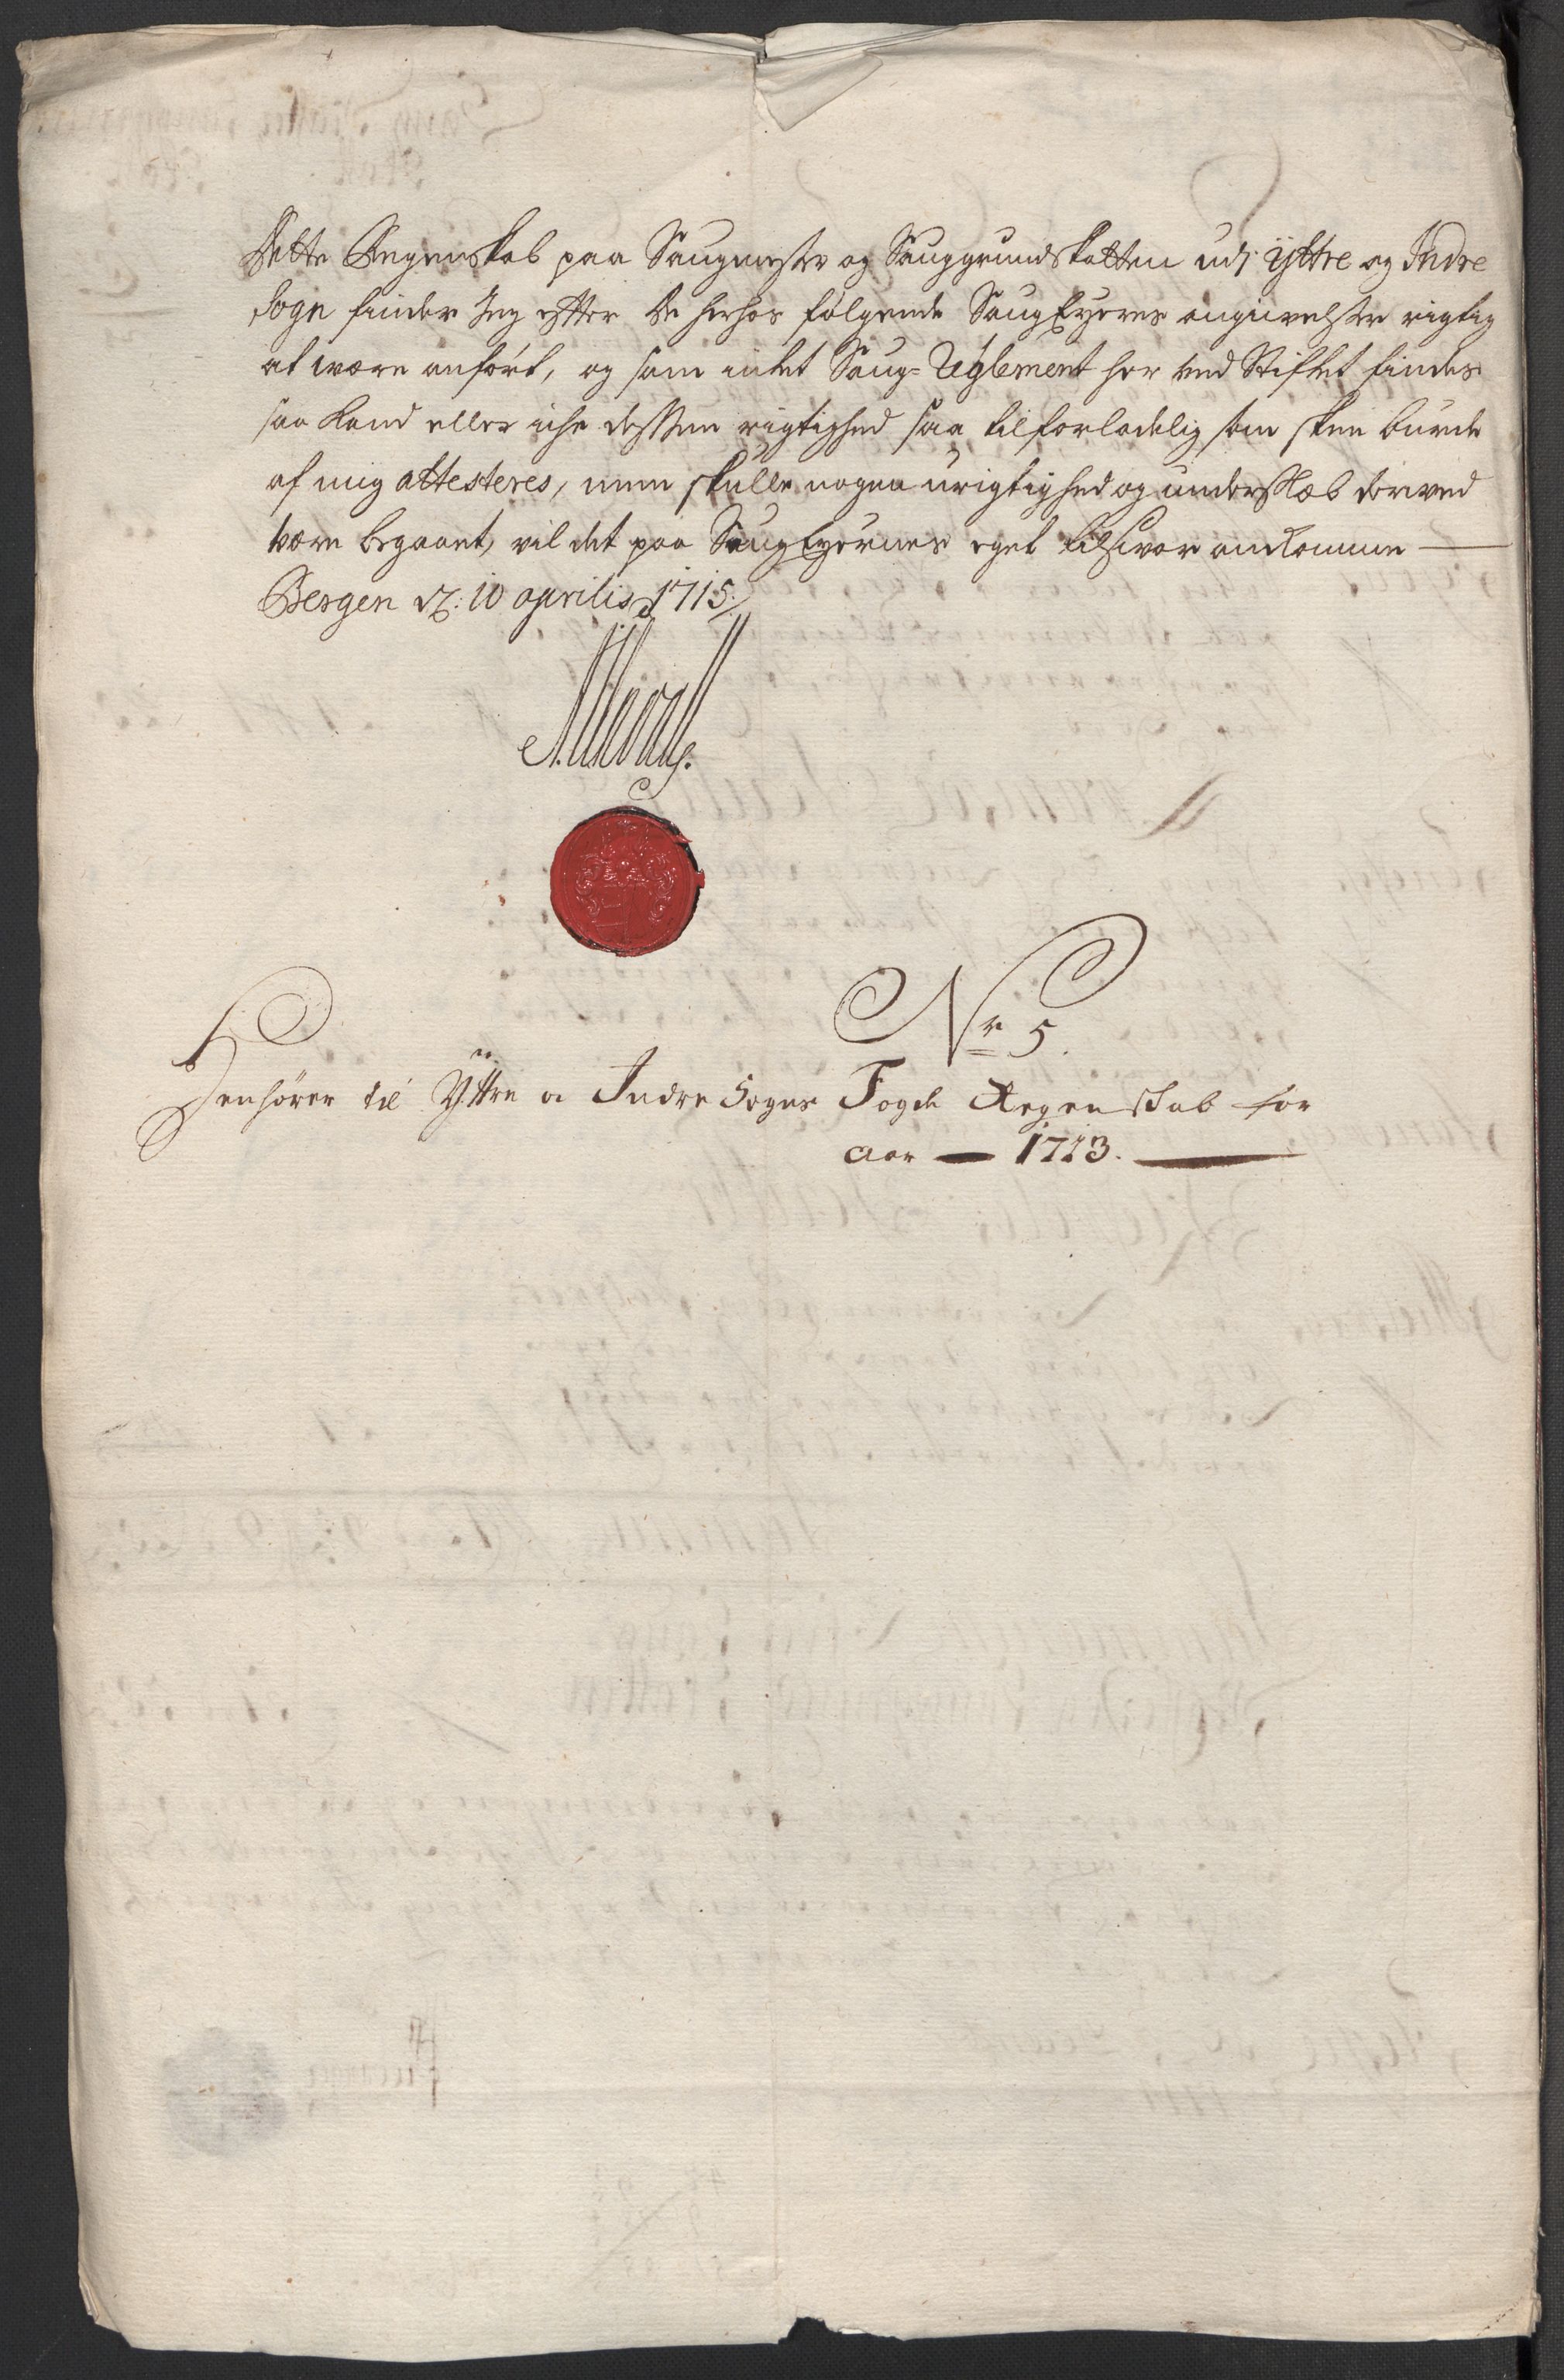 Dette Regenskab paa Saugener og Sauggrundskatten udj Ÿttre og Indre
Sogn finder Jeg efter de herhos følgende Saug Eÿeres angivelser rigtig
at være anført, og som intet Saug= Reglement her ved Stiftet findes
saa kand eller iche dessen rigtighed saa tilforladelig som skee burde
af mig attesteres, men skulle nogen urigtighed og underslæb derved
være begaaet, vil det paa Saug Eyernes eget tilsvar ankomme
Bergen d: 10 aprilis 1715.
Nr 5.
Henhører til Ÿttre o Indre Sogns Fogde Regenskab for
Aar — 1713.